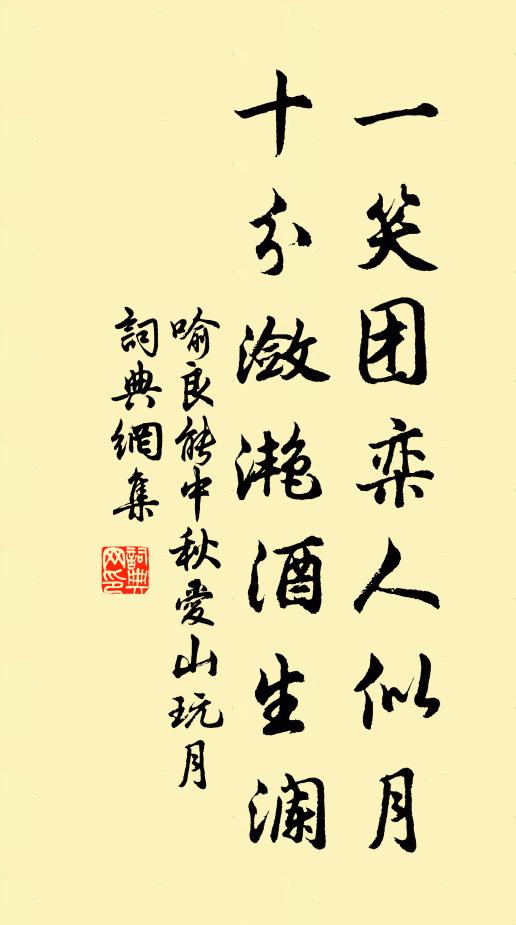 一笑团栾人似月
十分潋滟酒生澜
喻良能中秋爱山玩月
詞典網集
詞典网印